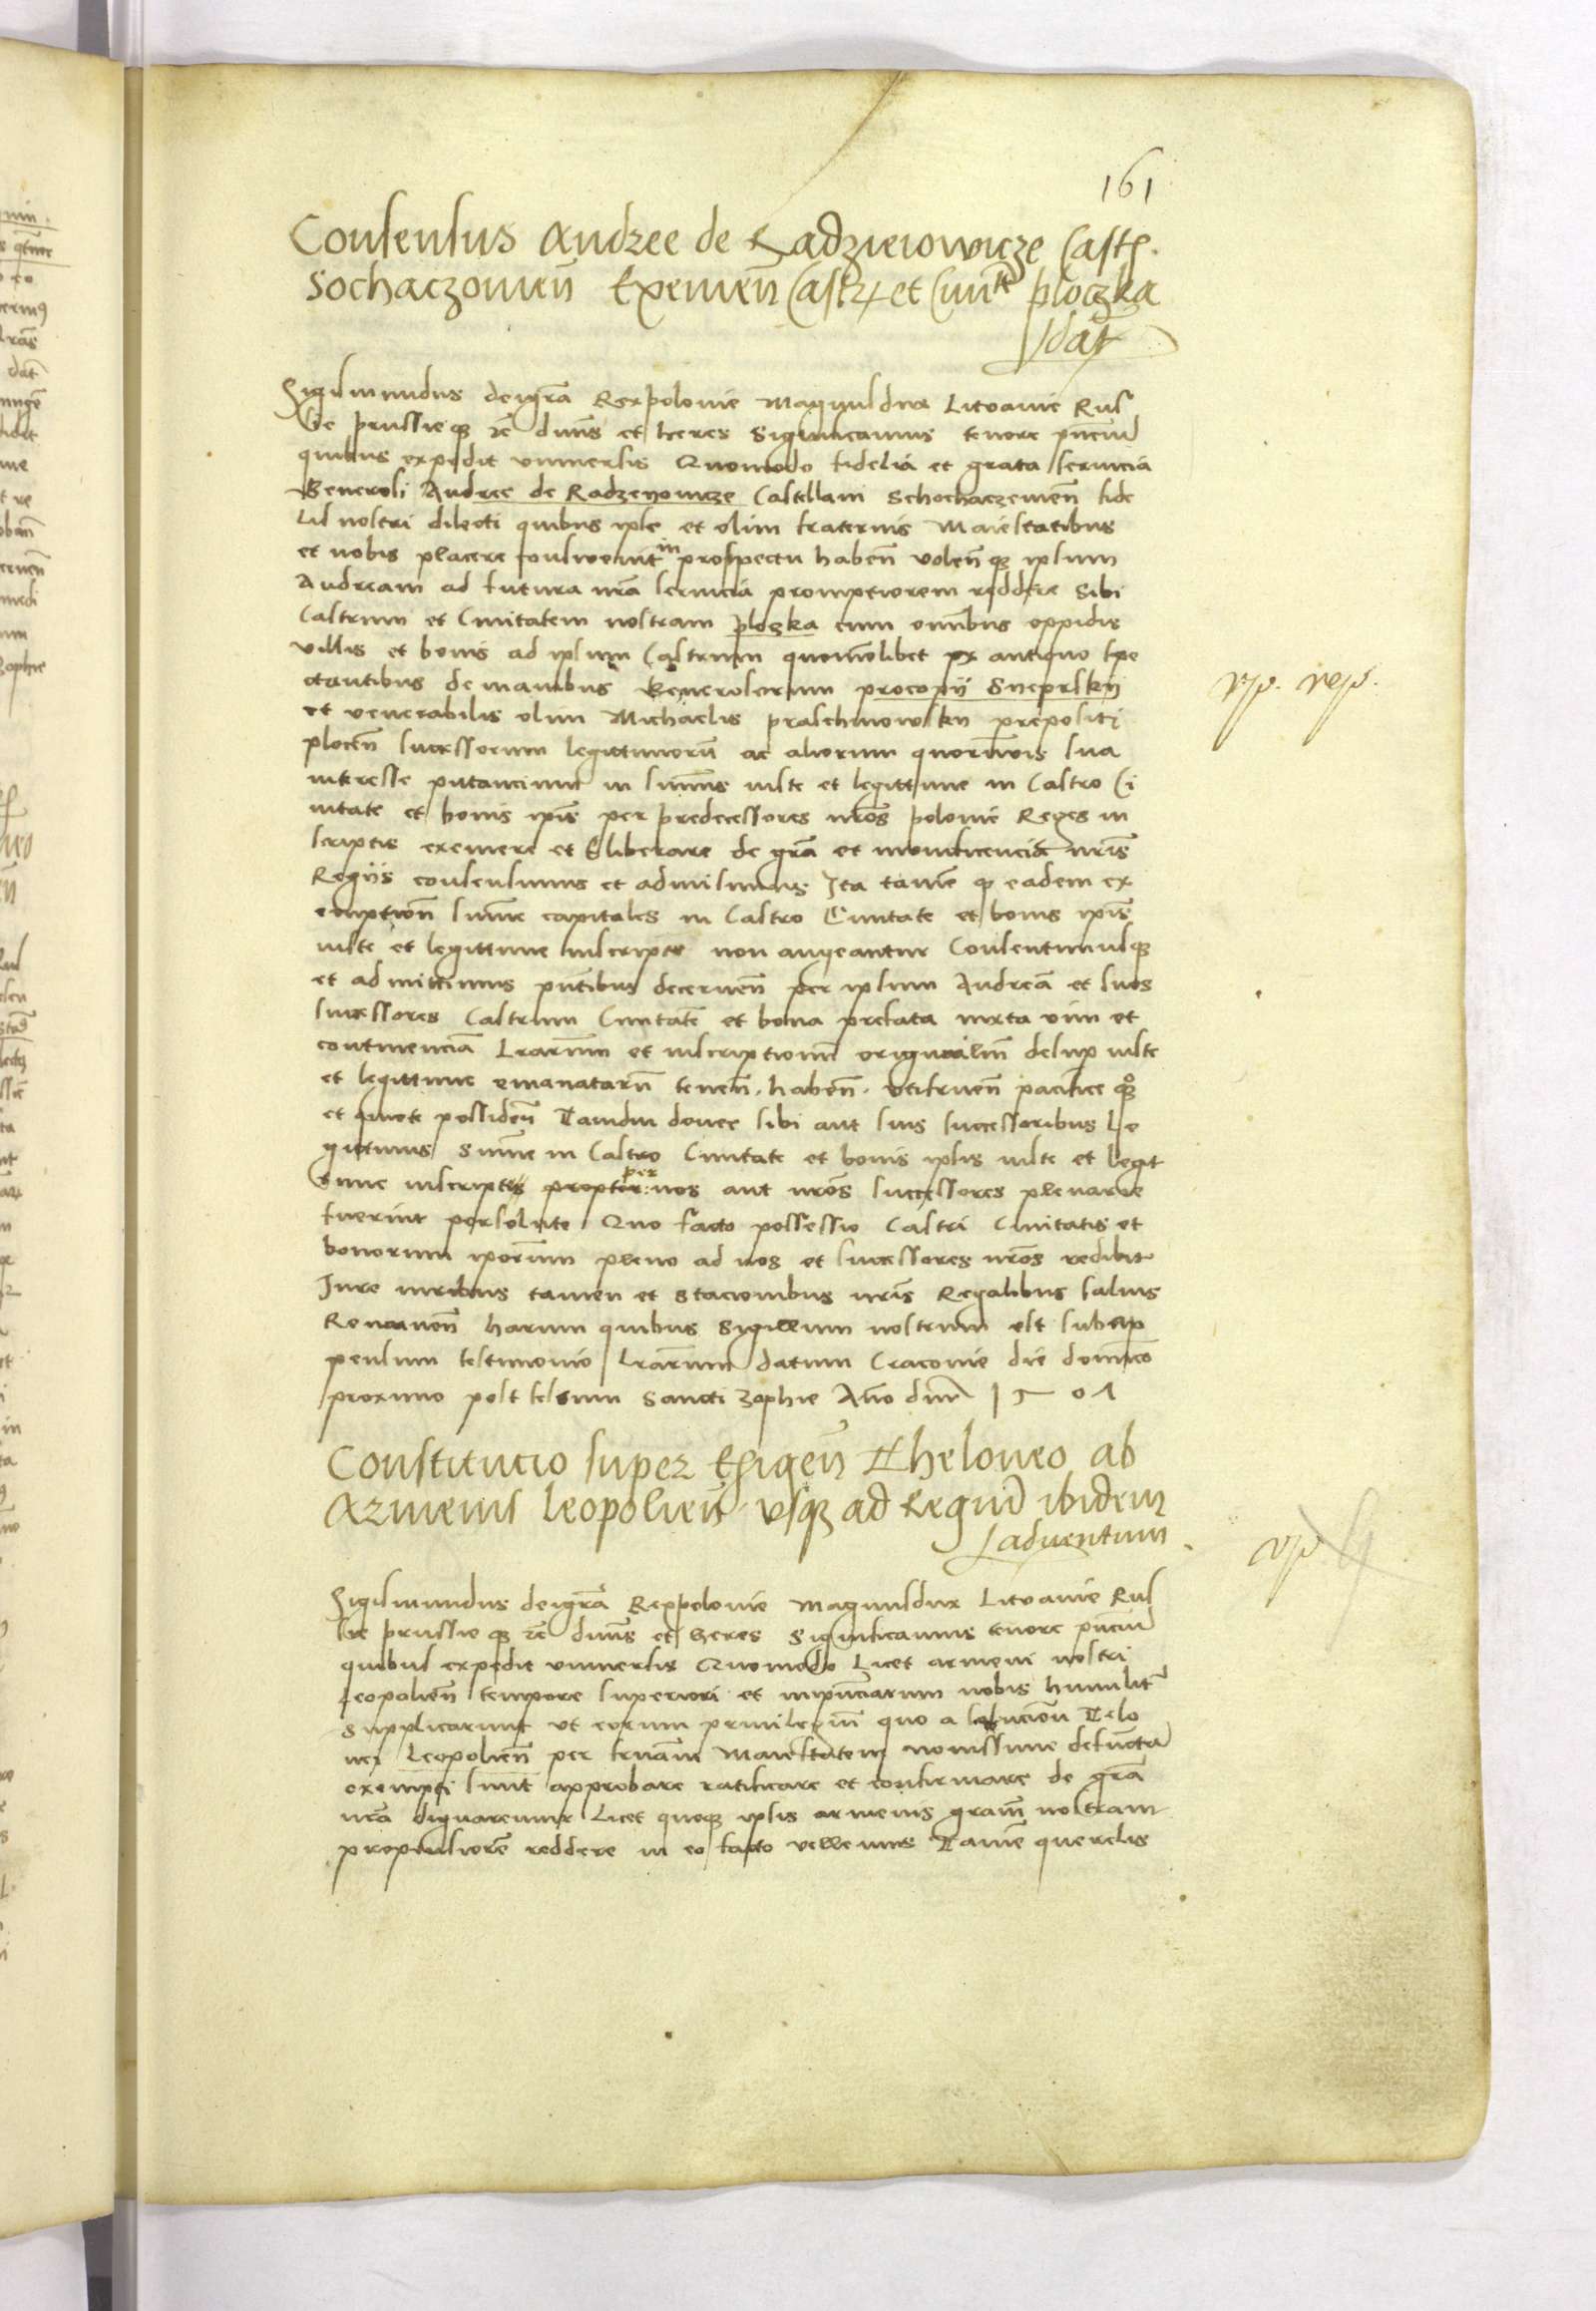 161
Consensus Andree de Radzieiowicze Castl.
Sochaczovien Eximen Castr et Civitte ploczka
dat
Sigismundus dei gra Rex polonie Magnus dux Litvanie Rus
sie prussieq zc dnus et heres Significamus tenore pntium
quibus expedit universis Quomodo fidelia et grata servicia
Generosi Andree de Radzenowicze Castellani Schochaczewien fide
lis nostri dilecti quibus ipse et olim fraternis Maiestatibus
et nobis placere consuevit in prospectu haben volenq ipsum
Andream ad futura nra servicia promptiorem reddere Sibi
Castrum et Civitatem nostram ploczka cum omnibus oppidis
villis et bonis ad ipsum Castrum quomolibet ex antiquo spe
ctantibus de manibus Generosorum procopij Sneprskij
et venerabilis olim Michaelis praschmowskij prepositi
plocen successorum legittimoru ac aliorum quorumvis sua
interesse putancium in sumis iuste et legittime in Castro Ci
vitate et bonis ipis per predecessores nros polonie Reges in
scriptis eximere et liberare de gra et munificencia nris
Regijs consensimus et admisimus Ita tame q eadem ex
emption sume capitales in Castro Civitate et bonis ipis
iuste et legittime inscripte non augeantur Consentimusq
et admittimus pntibus decernen per ipsum Andrea et suos
successores Castrum Civitate et bona prefata iuxta vim et
continencia Lrarum et inscriptionu originaliu desup iuste
et legittime emanataru tenen. haben. utifruen pacifice q
et quiete possiden Tamdiu donec sibi aut suis successoribus Le
gittimis Sume in Castro Civitate et bonis ipsis iuste et legit
time inscripte propter per nos aut nros successores plenarie
fuerint persolute Quo facto possessio Castri Civitatis et
bonorum iporum pleno ad nos et successores nros redibit
Jure iuribus tamen et Stacionibus nris Regalibus salvis
harum quibus Sigillum nostrum est subap
pensum testimonio Lrarum datum Cracovie die dominico
proximo post festum Sancti Zophie Ano dni
Constitucio super Exigen Theloneo ab
Armenis leopolien usq ad Regiu ibidem
adventum
Sigismundus dei gra Rex polonie Magnus dux Litvanie Rus
sie prussieq zc dnus et heres Significamus tenore pntium
quibus expedit universis Quomodo Licet armeni nostri
leopolien tempore superiori et impnciarum nobis humilit
Supplicarunt ut eorum privilegiu quo a solucion Telo
nei Leopolien per frnam Maiestatem novissime defuncta
exempti sunt approbare ratificare et confirmare de gra
nra dignaremur Licet quoq ipsis armenis gram nostram
propensiore reddere in eo facto vellemus Tame querelis